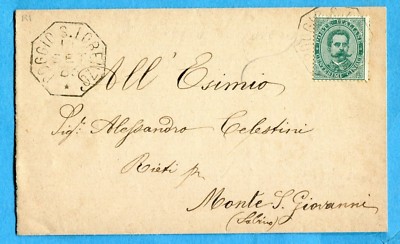 POGGIO S. LORENZO
All' Esimio
Sigr Alessandro Celestini
Rieti pr
Monte S. Giovanni
(Sabino)